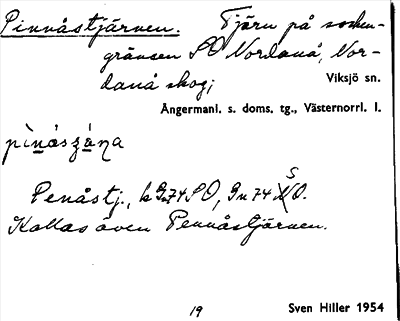 Pinnåstjärnen. Tjärn på socken-
gränsen SO Nordanå, Nor-
danå skog; Viksjö sn.
Ångermanl. s. doms. tg., Västernorrl. l.
Penåstj., k Gn74SO, Gn74 SO.
Kallas även Pennåstjärnen.
19 Sven Hiller 1954